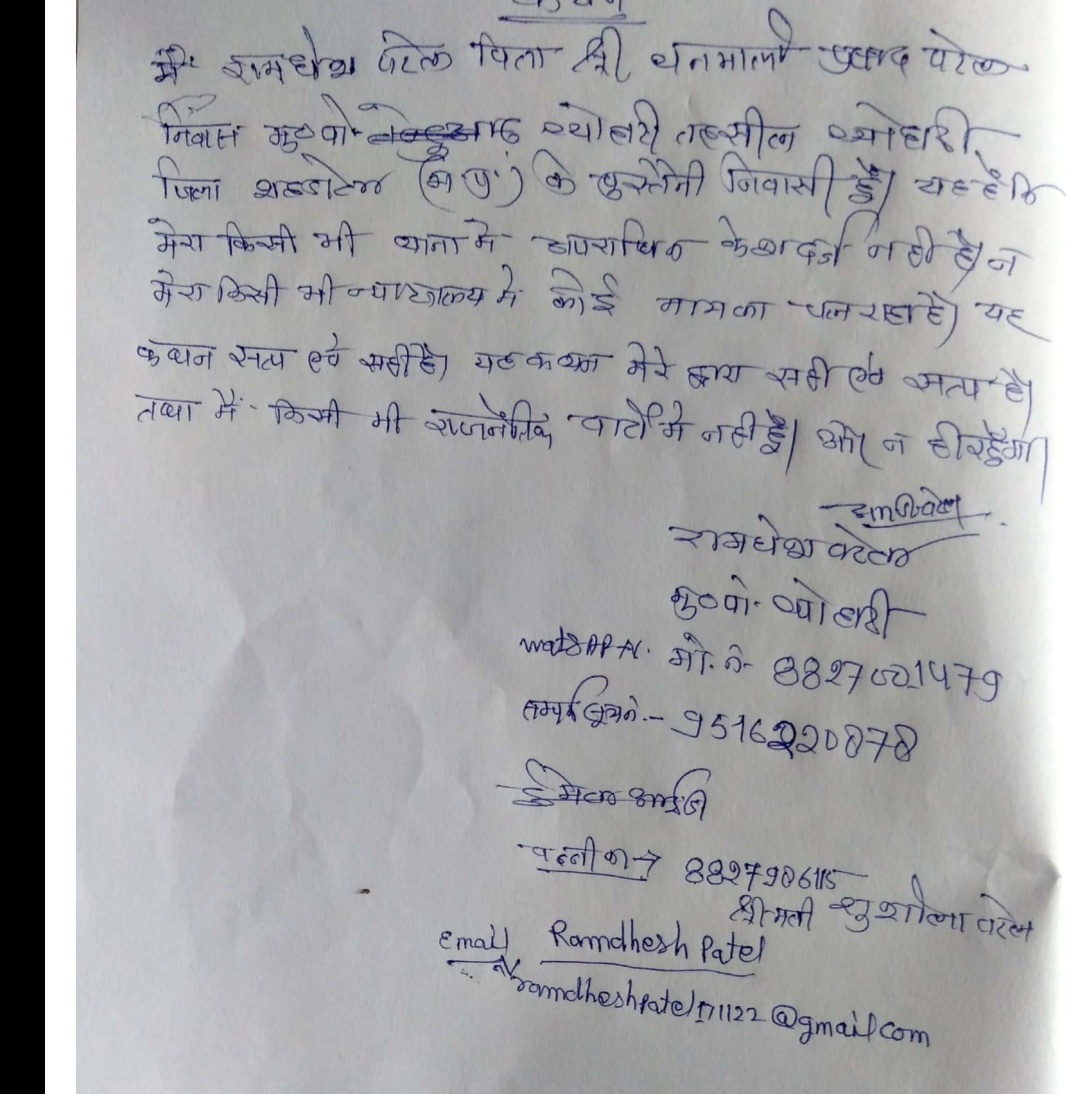 मैं रामधेश पटेल पिता श्री वनमाली प्रसाद पटेल
निवास मु०पो० ब्योहारी तहसील ब्योहारी
जिला शहडोल (म.प्र.) के पुस्तैनी निवासी हूँ। यह है कि
मेरा किसी भी थाना मे अपराधिक केश दर्ज नही है। न
मेरा किसी भी न्यायालय मे कोई मामला चल रहा है। यह
कथन सत्य एवं सही है। यह कथन मेरे द्वारा सही एवं सत्य है।
तथा मैं किसी भी राजनैतिक पार्टी मे नही हूँ। और न ही रहूँगा।
रामधेश पटेल
मु०पो. ब्योहारी
watsAPP N. मो. नं- 8827001479
9516220878
ईमेल आईडी
पत्नी का → 8827906115
श्रीमती सुशीला पटेल
Email Ramdhesh Patel
ramdheshpatel171122@gmail.com